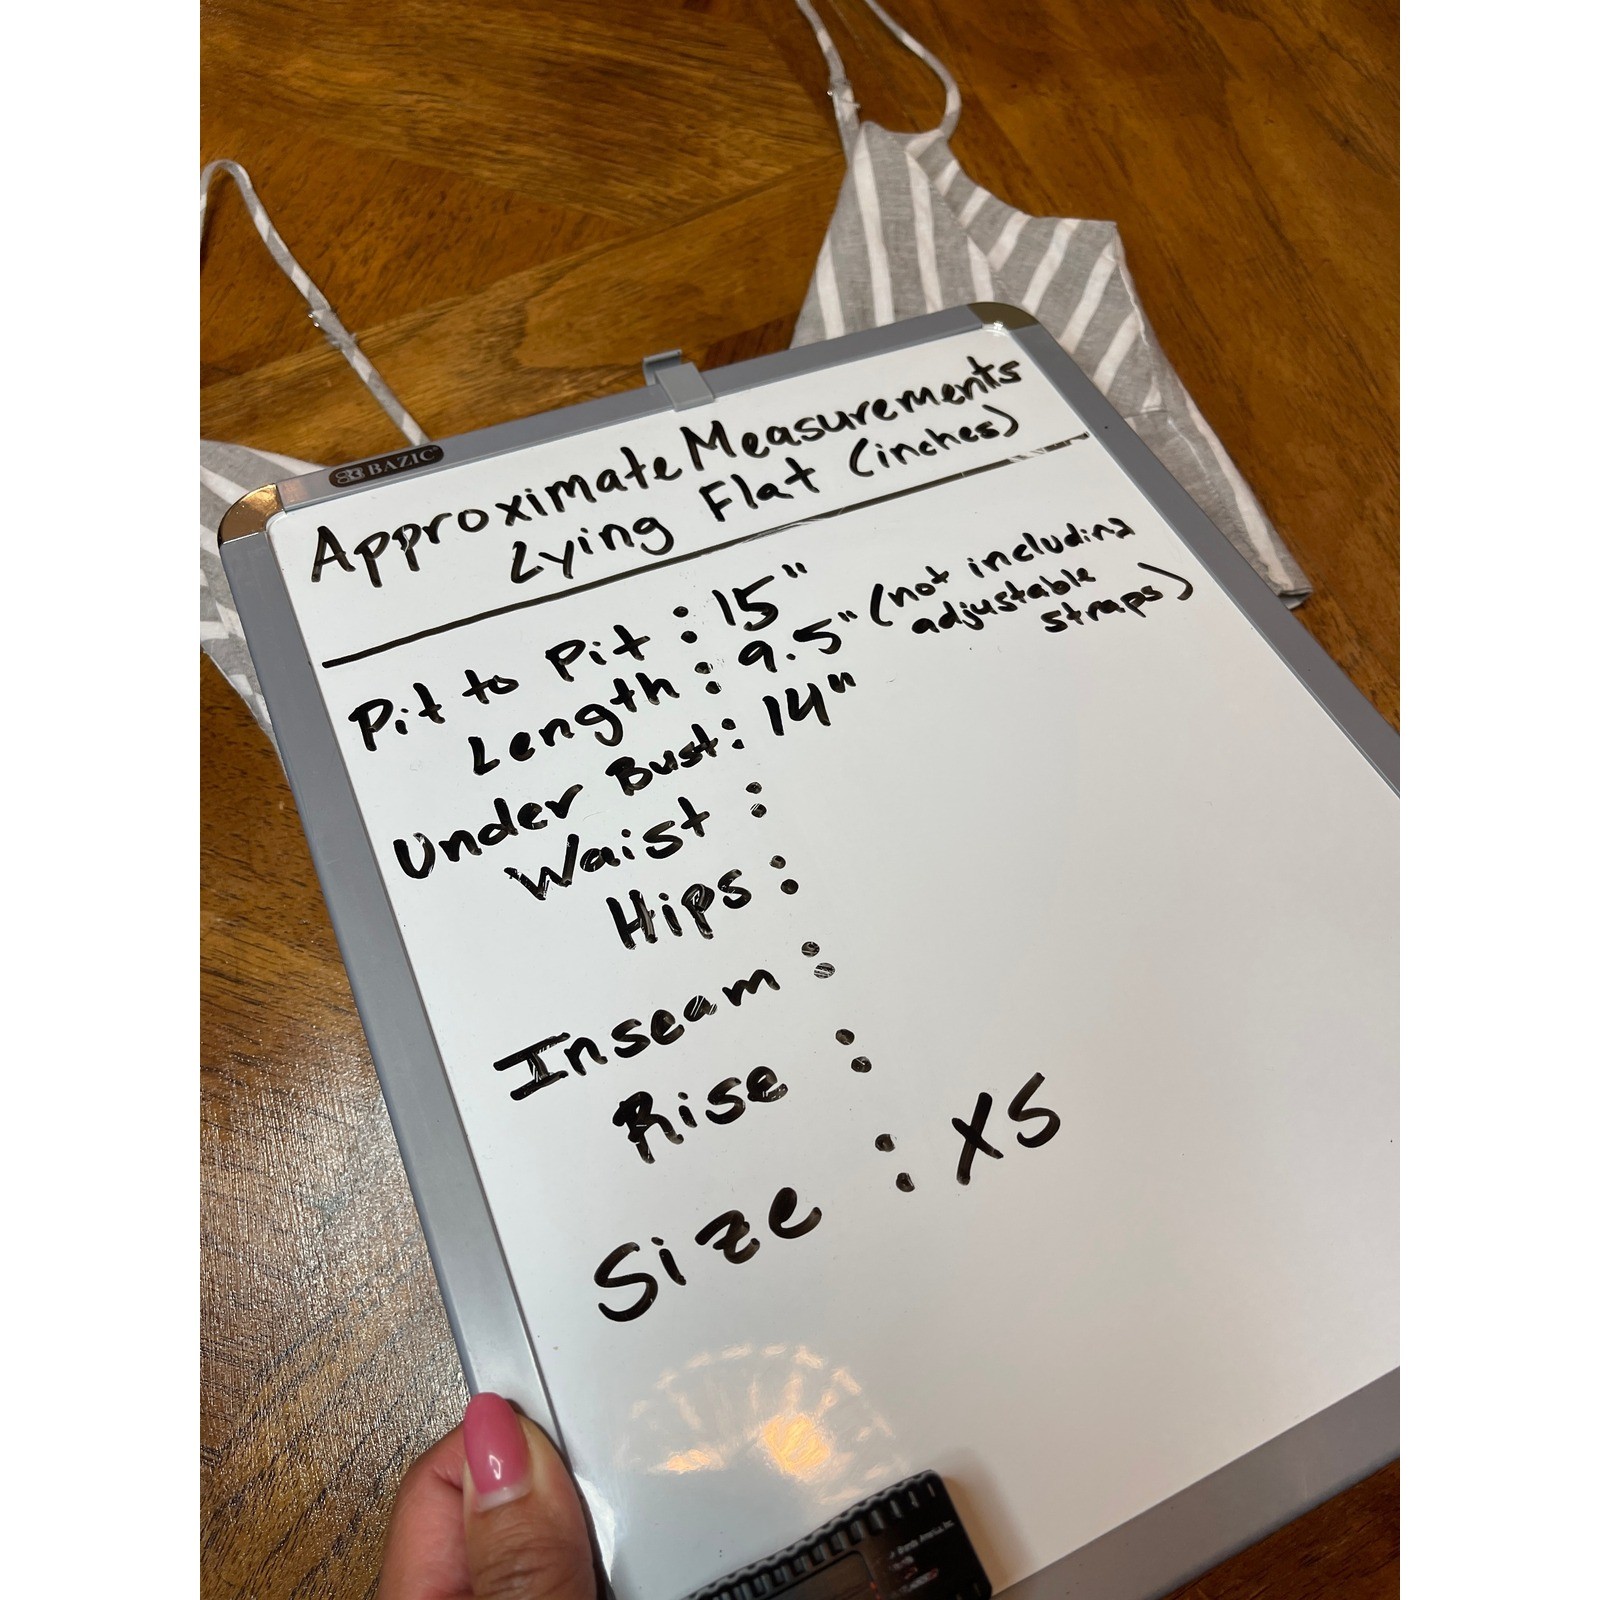 BAZIC
Approximate Measurements
Lying Flat (inches)
Pit to Pit : 15"
Length : 9.5" (not including
adjustable
straps)
Under Bust : 14"
Waist :
Hips :
Inseam :
Rise :
Size : XS